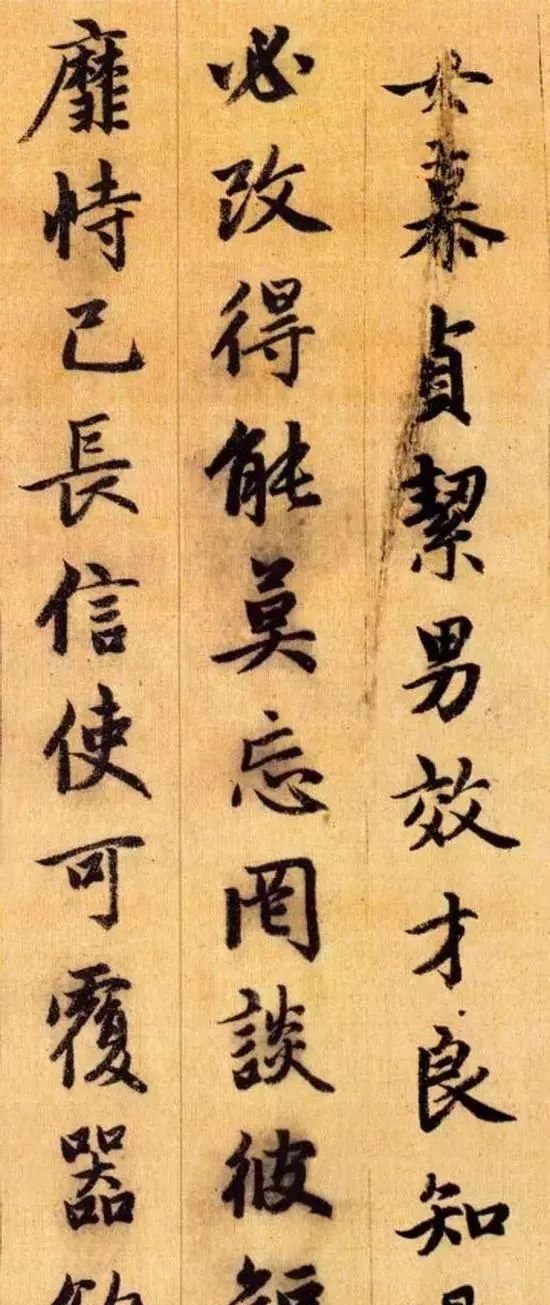 女慕貞絜男效才良知
必改得能莫忘罔談彼短
靡恃己長信使可覆器欲